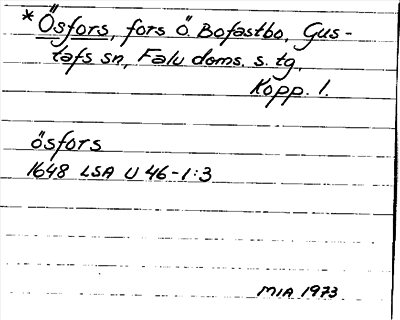 * Ösfors, fors ö Bofastbo, Gus-
tafs sn, Falu doms. s. tg.
Kopp. l.
ösfors
1648 LSA U 46-1:3
MIA 1973